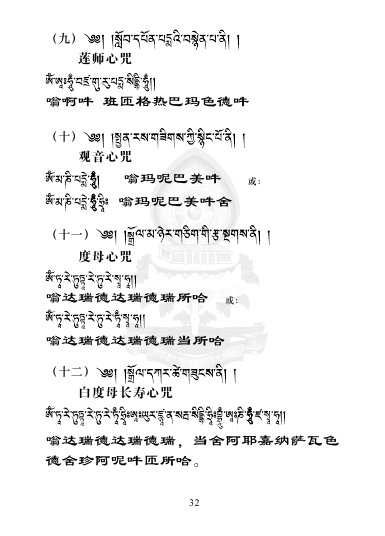 （九）༄༅། །སློབ་དཔོན་པདྨའི་བསྙེན་པ་ནི། །
莲师心咒
ༀ་ཨཱཿཧཱུྂ་བཛྲ་གུ་རུ་པདྨ་སིདྡྷི་ཧཱུྂ།།
嗡啊吽 班匝格热巴玛色德吽
（十）༄༅། །སྤྱན་རས་གཟིགས་ཀྱི་སྙིང་པོ་ནི། །
观音心咒
ༀ་མ་ཎི་པདྨེ་ཧཱུྂ། 嗡玛呢巴美吽 或:
ༀ་མ་ཎི་པདྨེ་ཧཱུྂ་ཧྲཱིཿ 嗡玛呢巴美吽舍
（十一）༄༅། །སྒྲོལ་མ་ཉེར་གཅིག་གི་རྩ་སྔགས་ནི། །
度母心咒
ༀ་ཏཱ་རེ་ཏུཏྟཱ་རེ་ཏུ་རེ་སྭཱ་ཧཱ།།
嗡达瑞德达瑞德瑞所哈 或:
ༀ་ཏཱ་རེ་ཏུཏྟཱ་རེ་ཏུ་རེ་ཏཱྂ་སྭཱ་ཧཱ།།
嗡达瑞德达瑞德瑞当所哈
（十二）༄༅། །སྒྲོལ་དཀར་ཚེ་གཟུངས་ནི། །
白度母长寿心咒
嗡达瑞德达瑞德瑞，当舍阿耶嘉纳萨瓦色
德舍珍阿呢吽匝所哈。
32